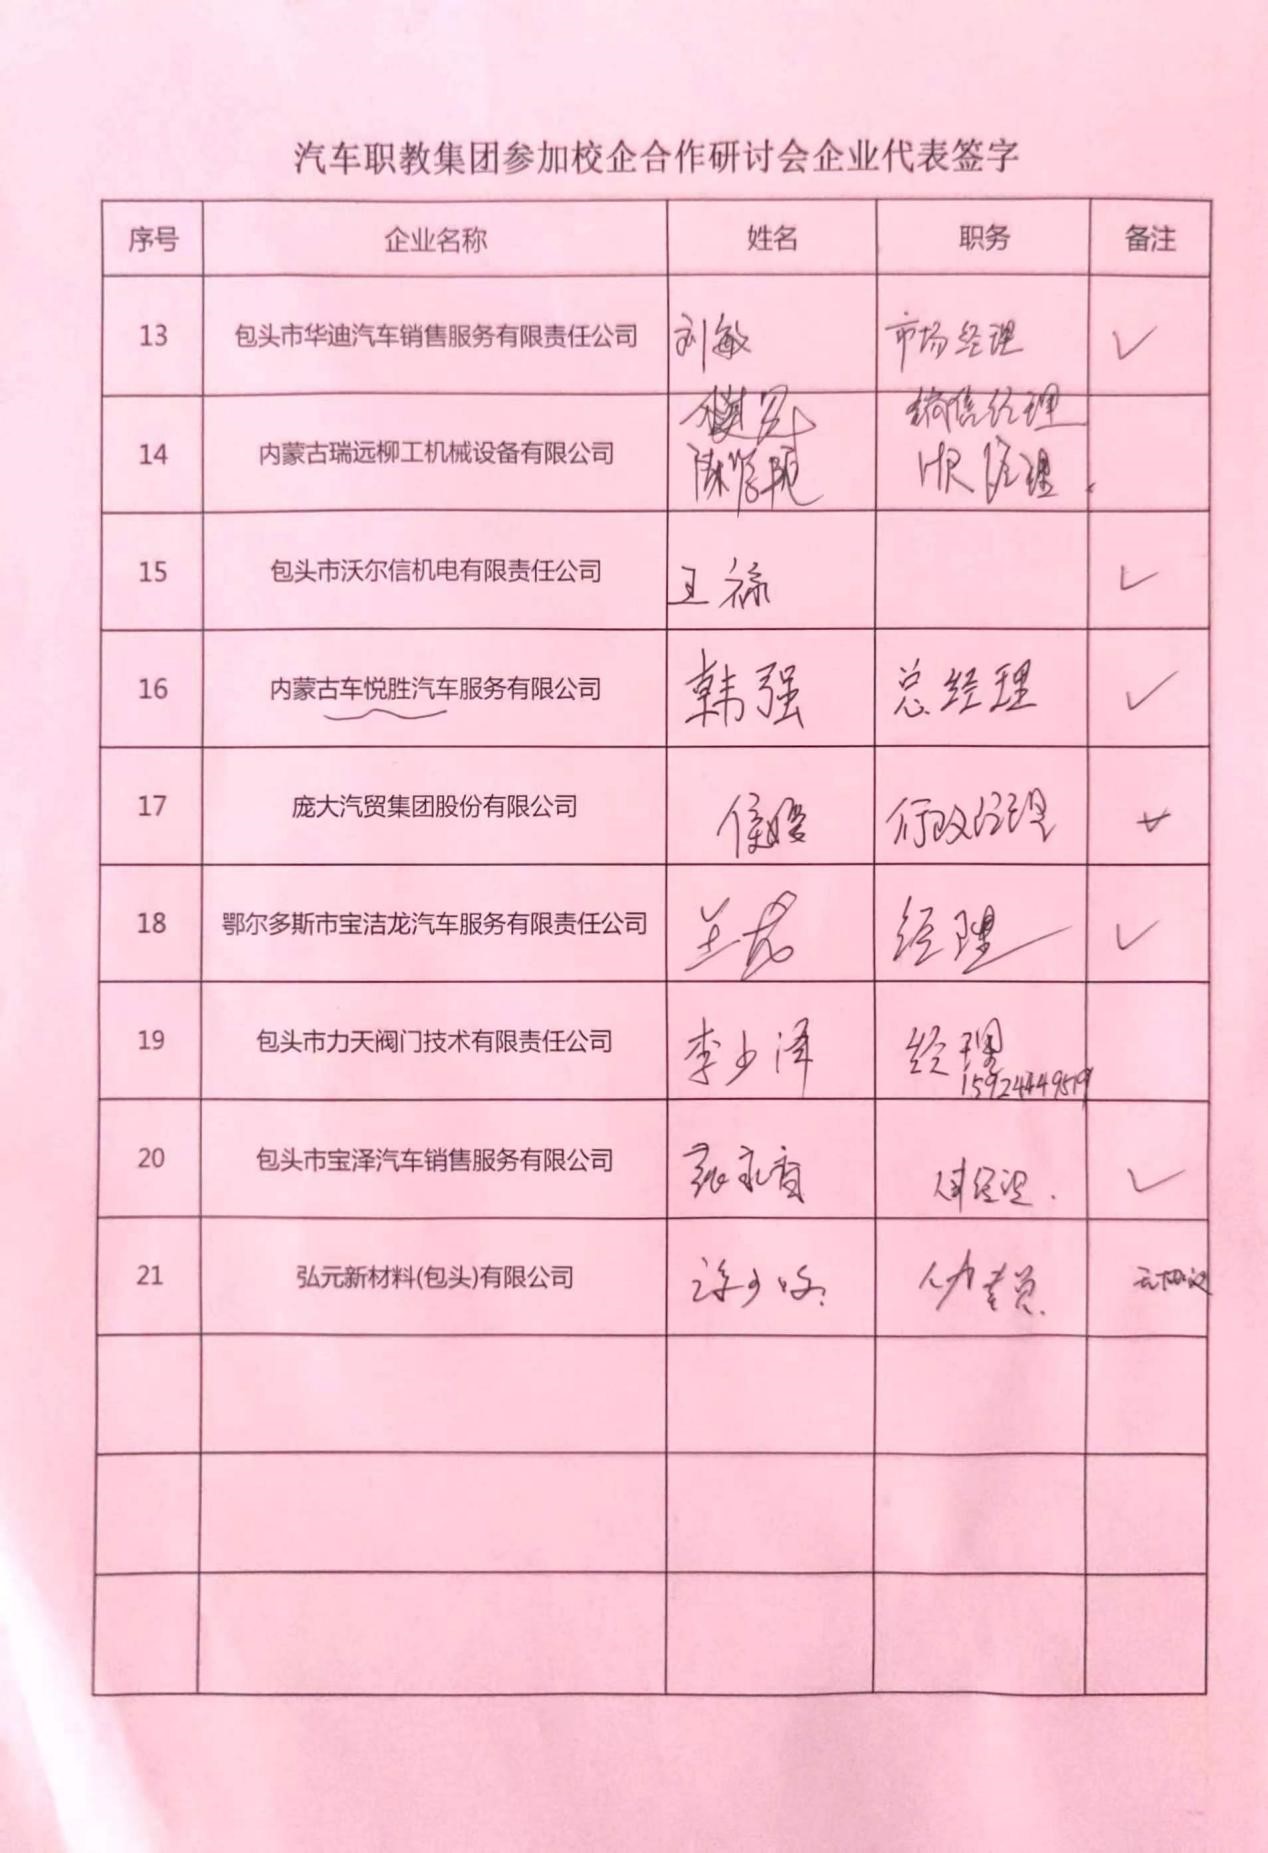 汽车职教集团参加校企合作研讨会企业代表签字
序号 企业名称 姓名 职务 备注
13 包头市华迪汽车销售服务有限责任公司 刘敏 市场经理 ✓
销售经理
14 内蒙古瑞远柳工机械设备有限公司 HR经理
15 包头市沃尔信机电有限责任公司 王禄 ✓
16 内蒙古车悦胜汽车服务有限公司 韩强 总经理 ✓
17 庞大汽贸集团股份有限公司 行政经理 ✓
18 鄂尔多斯市宝洁龙汽车服务有限责任公司 经理 ✓
19 包头市力天阀门技术有限责任公司 李少泽 经理
15924449519
20 包头市宝泽汽车销售服务有限公司 ✓
21 弘元新材料(包头)有限公司